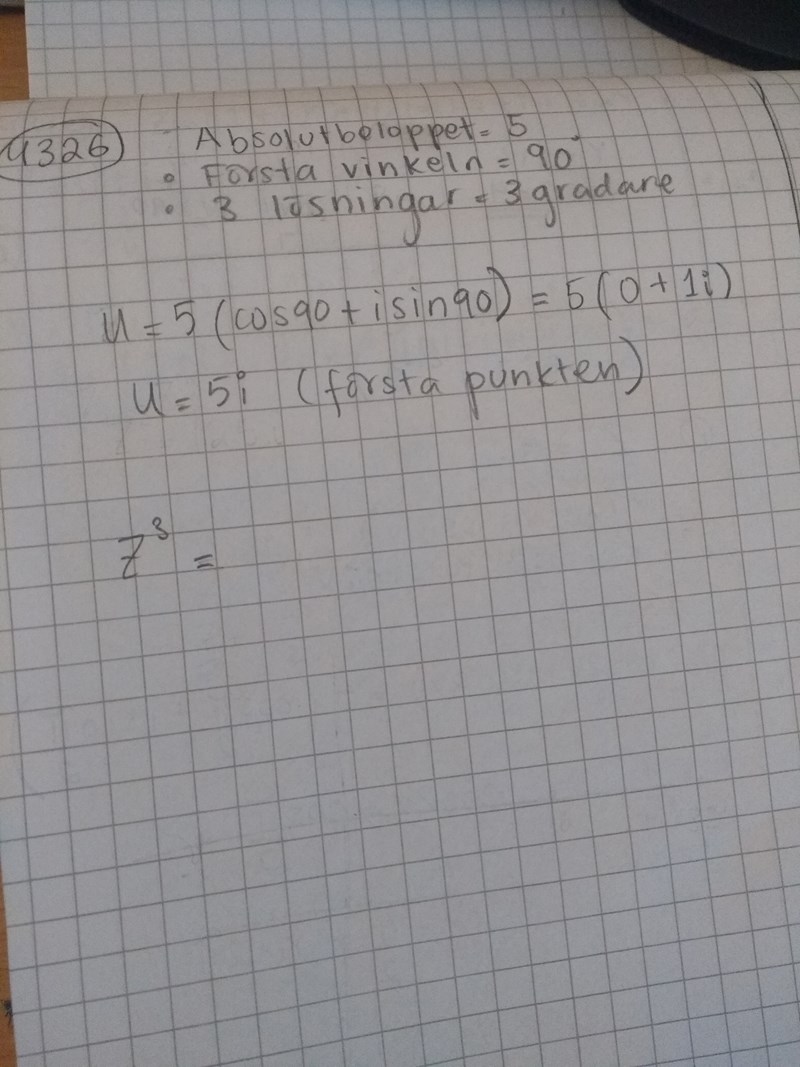 4326
Absolutbeloppet = 5
• Första vinkeln = 90°
• 3 lösningar = 3 gradare
u = 5 (cos90 + isin90) = 5 (0 + 1i)
u = 5i (första punkten)
z³ =